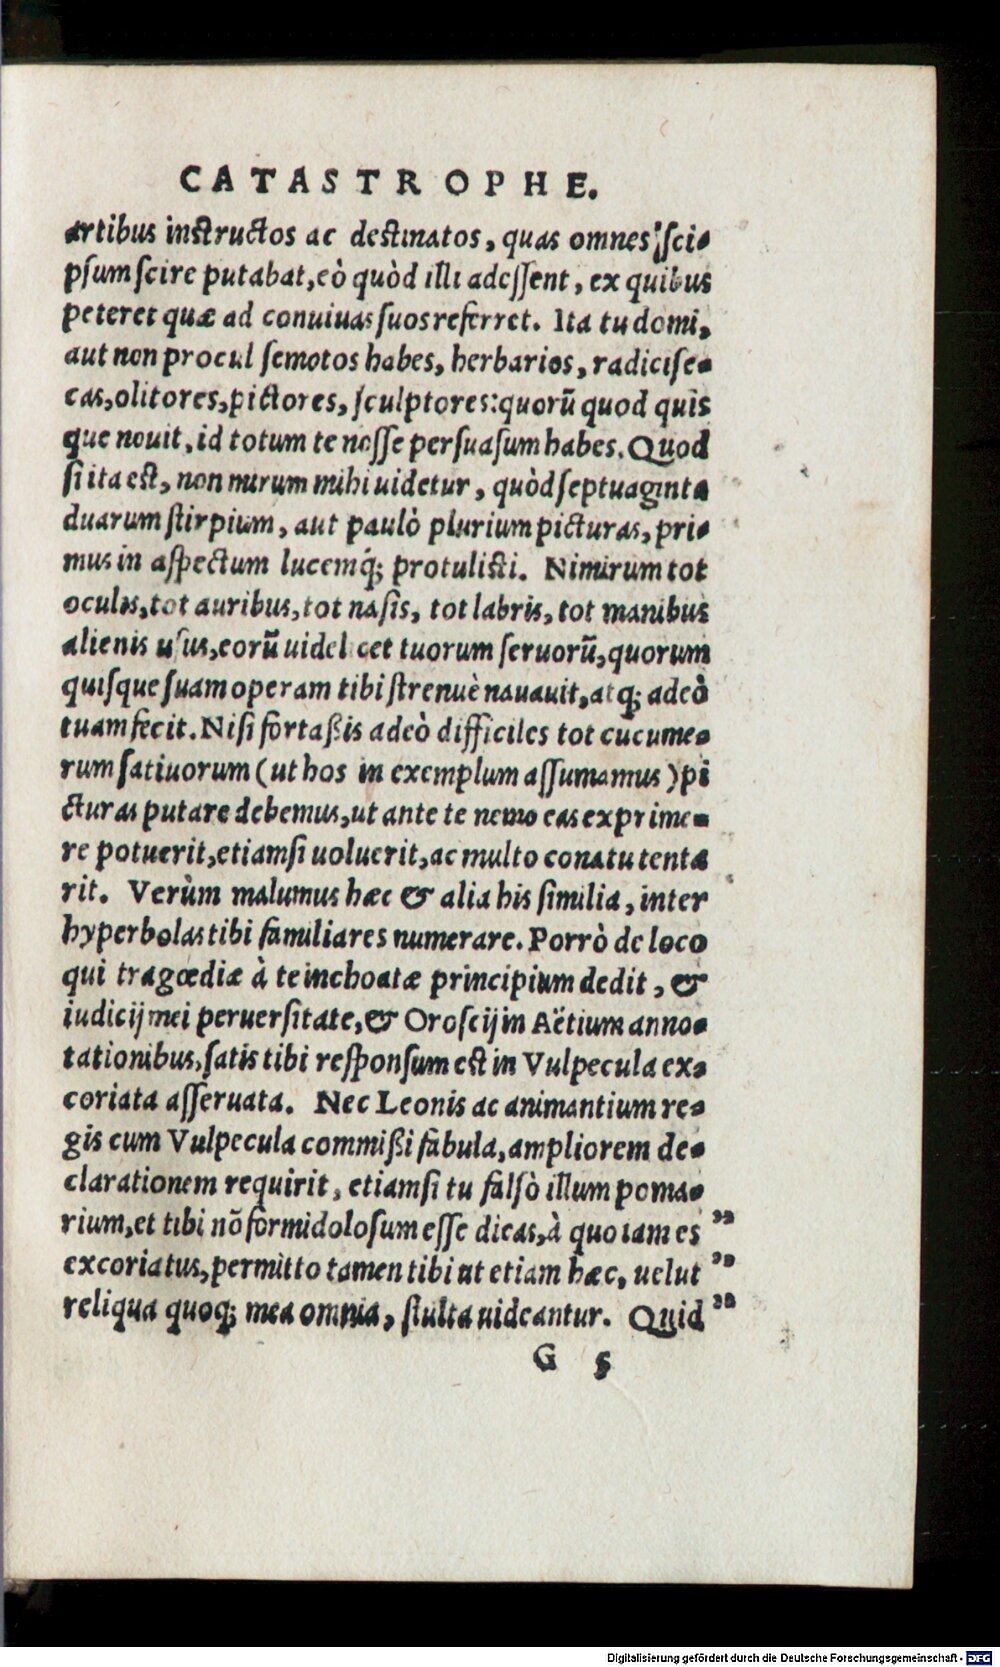 CATASTROPHE.
artibus instructos ac destinatos, quas omnes sci-
psum scire putabat, eò quòd illi adessent, ex quibus
peteret quæ ad conuiuas suos referret. Ita tu domi,
aut non procul semotos habes, herbarios, radicise-
cas, olitores, pictores, sculptores: quorū quod quis
que nouit, id totum te nosse persuasum habes. Quod
si ita est, non mirum mihi uidetur, quòd septuaginta
duarum stirpium, aut paulò plurium picturas, pri-
mus in aspectum lucemq́; protulisti. Nimirum tot
oculis, tot auribus, tot nasis, tot labris, tot manibus
alienis usus, eorū uidelicet tuorum seruorū, quorum
quisque suam operam tibi strenuè nauauit, atq; adeò
tuam fecit. Nisi fortaßis adeò difficiles tot cucume-
rum satiuorum (ut hos in exemplum assumamus) pi
cturas putare debemus, ut ante te nemo eas exprime-
re potuerit, etiamsi uoluerit, ac multo conatu tenta
rit. Verùm malumus hæc & alia his similia, inter
hyperbolas tibi familiares numerare. Porrò de loco
qui tragœdiæ à te inchoatæ principium dedit, &
iudicij mei peruersitate, & Oroscij in Aëtium anno-
tationibus, satis tibi responsum est in Vulpecula ex-
coriata asseruata. Nec Leonis ac animantium re-
gis cum Vulpecula commißi fabula, ampliorem de-
clarationem requirit, etiamsi tu falsò illum poma-
rium, et tibi nō formidolosum esse dicas, à quo iam es "
excoriatus, permitto tamen tibi ut etiam hæc, uelut "
reliqua quoq; mea omnia, stulta uideantur. Quid "
G 5
Digitalisierung gefördert durch die Deutsche Forschungsgemeinschaft - DFG